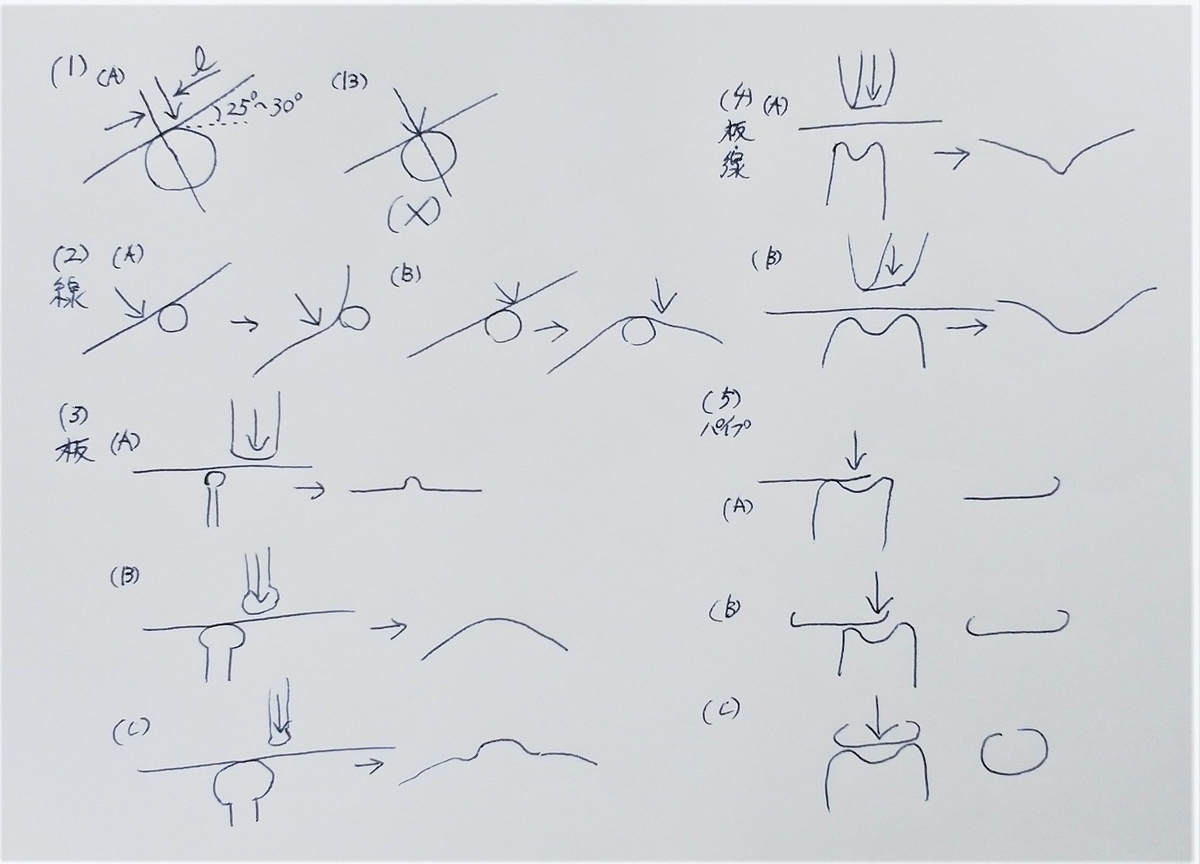 (1) (A)
l
25°~30°
(B)
(X)
(2) (A)
線
(B)
(3)
板 (A)
(B)
(C)
(4) (A)
板・線
(B)
(5)
パイプ
(A)
(B)
(C)